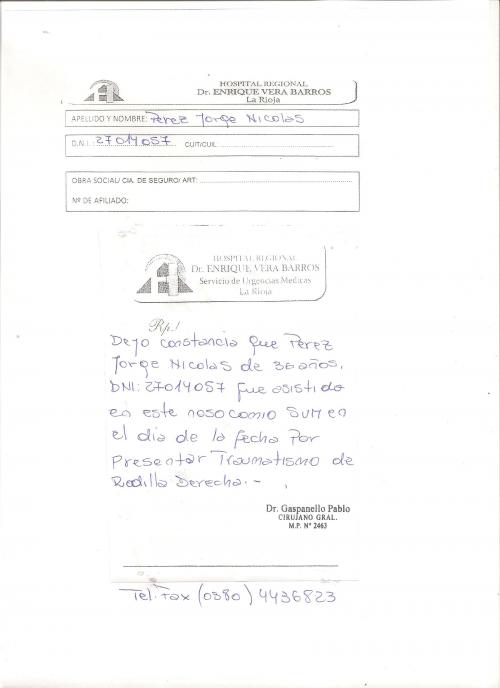 HOSPITAL REGIONAL
Dr. ENRIQUE VERA BARROS
La Rioja
APELLIDO Y NOMBRE: Perez Jorge Nicolas
D.N.I.: 27014057 CUIT/CUIL
OBRA SOCIAL/ CIA. DE SEGURO/ ART:
Nº DE AFILIADO:
HOSPITAL REGIONAL
Dr. ENRIQUE VERA BARROS
Servicio de Urgencias Medicas
La Rioja
Rp.!
Dejo constancia que Perez
Jorge Nicolas de 36 años,
DNI: 27014057 fue asistido
en este nosocomio SUM en
el dia de la fecha Por
Presentar Traumatismo de
Rodilla Derecha.-
Dr. Gaspanello Pablo
CIRUJANO GRAL.
M.P. Nº 2463
Tel. Fax (0380) 4436823